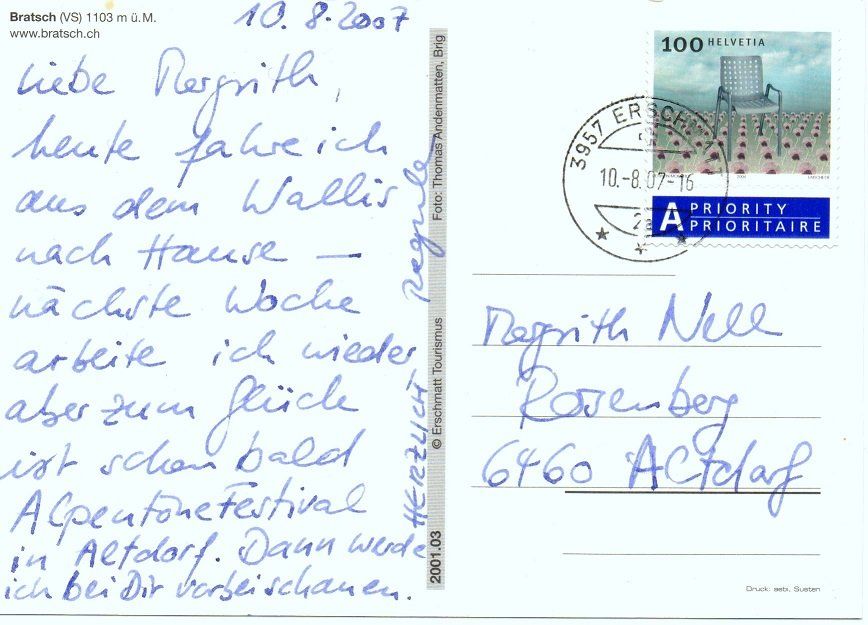 Bratsch (VS) 1103 m ü.M.
www.bratsch.ch
10.8.2007
Liebe Margrith,
heute fahre ich
aus dem Wallis
nach Hause –
nächste Woche
arbeite ich wieder
aber zum Glück
ist schon bald
Alpentönefestival
in Altdorf. Dann werde
ich bei Dir vorbeischauen.
HERZLICH Regula
Foto: Thomas Andenmatten, Brig
© Erschmatt Tourismus
2001.03
100 HELVETIA
2004
3957 ERSCHMATT
10.-8.07-16
2a
A PRIORITY
PRIORITAIRE
Margrith Nell
Rosenberg
6460 Altdorf
Druck: aebi, Susten